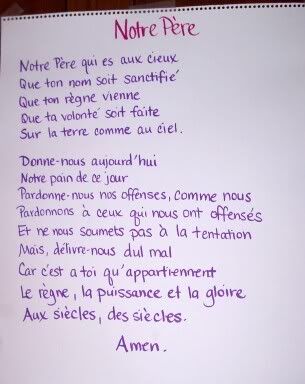 Notre Père
Notre Père qui es aux cieux
Que ton nom soit sanctifié
Que ton règne vienne
Que ta volonté soit faite
Sur la terre comme au ciel.
Donne-nous aujourd'hui
Notre pain de ce jour
Pardonne-nous nos offenses, comme nous
Pardonnons à ceux qui nous ont offensés
Et ne nous soumets pas à la tentation
Mais, délivre-nous dul mal
Car c'est a toi qu'appartiennent
Le règne, la puissance et la gloire
Aux siècles, des siècles.
Amen.